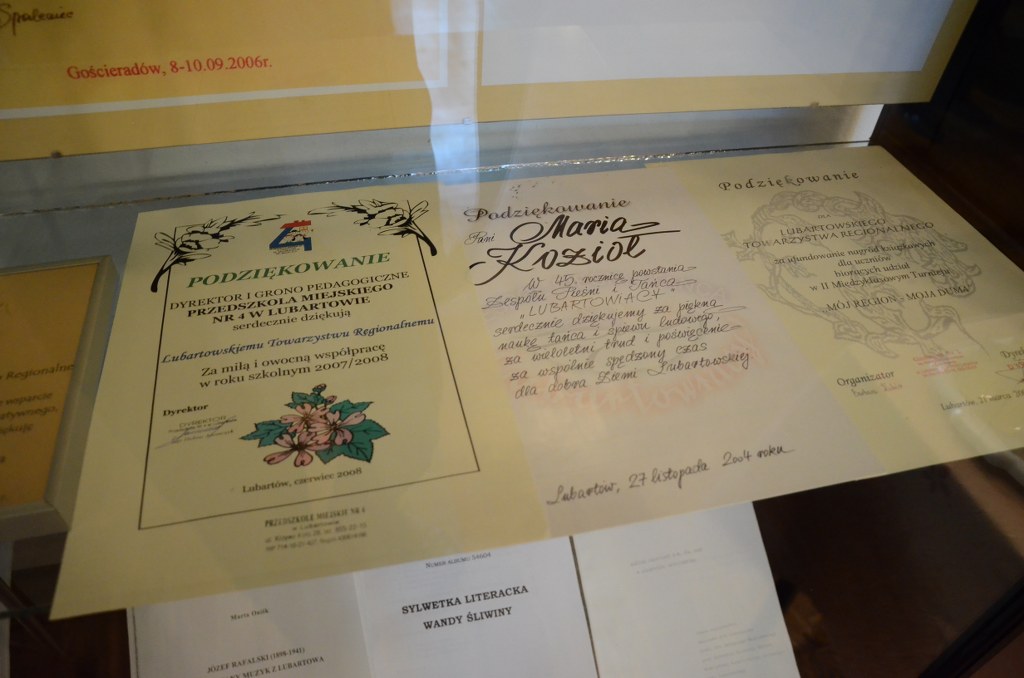 Gościeradów, 8-10.09.2006r.
PODZIĘKOWANIE
DYREKTOR I GRONO PEDAGOGICZNE
PRZEDSZKOLA MIEJSKIEGO
NR 4 W LUBARTOWIE
serdecznie dziękują
Lubartowskiemu Towarzystwu Regionalnemu
Za miłą i owocną współpracę
w roku szkolnym 2007/2008
Dyrektor
Lubartów, czerwiec 2008
PRZEDSZKOLE MIEJSKIE NR 4
w Lubartowie
Podziękowanie
Pani Maria
Kozioł
w 45. rocznicę powstania
Zespołu Pieśni i Tańca
"LUBARTOWIACY"
serdecznie dziękujemy za piękną
naukę tańca i śpiewu ludowego,
za wieloletni trud i poświęcenie
za wspólnie spędzony czas
dla dobra Ziemi Lubartowskiej
Lubartów, 27 listopada 2004 roku
Podziękowanie
DLA
LUBARTOWSKIEGO
TOWARZYSTWA REGIONALNEGO
za ufundowanie nagród książkowych
dla uczniów
biorących udział
w II Międzyklasowym Turnieju
„MÓJ REGION - MOJA DUMA"
Organizator
Lubartów, 21 marca
Regionalne
wsparcie
Marta Osiik
JÓZEF RAFALSKI (1898-1941)
MUZYK Z LUBARTOWA
SYLWETKA LITERACKA
WANDY ŚLIWINY